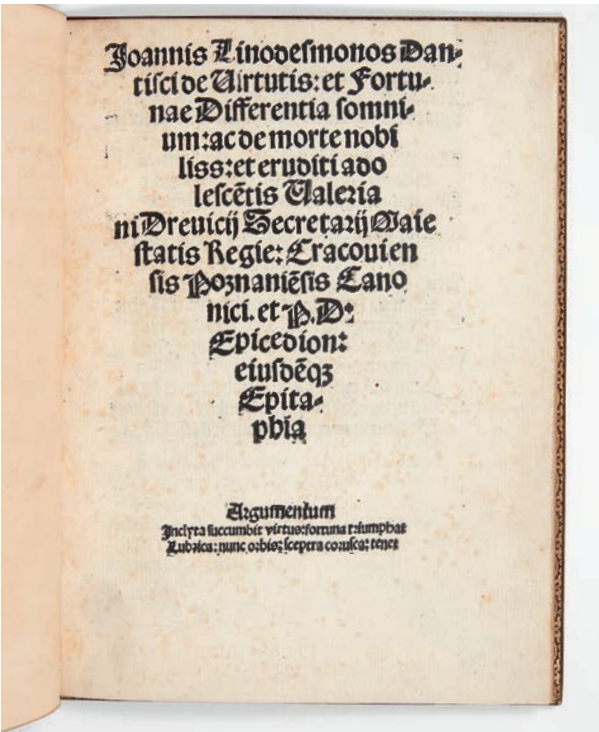 Joannis Linodesmonos Dan⸗
tisci de Uirtutis: et Fortu⸗
nae Differentia somni⸗
um: ac de morte nobi
liss: et eruditi ado
lescētis Ualeria
ni Dreuicij Secretarij Maie
statis Regie: Cracouien
sis Poznaniēsis Cano
nici. et P. D:
Epicedion:
eiusdēqz
Epita⸗
phia
Argumentum
Inclyta succumbit virtus: fortuna triumphat
Lubrica: nunc orbis: sceptra corusca: tenet